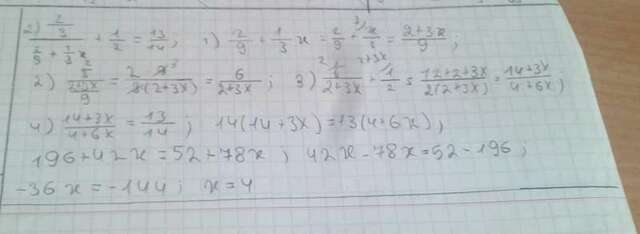 2) (2/3)/(2/9 + 1/3 x) + 1/2 = 13/14; 1) 2/9 + 1/3 x = 2/9 + x/3 = (2+3x)/9;
2) (2/3)/((2+3x)/9) = (2·9)/(3(2+3x)) = 6/(2+3x); 3) 6/(2+3x) + 1/2 = (12+2+3x)/(2(2+3x)) = (14+3x)/(4+6x);
4) (14+3x)/(4+6x) = 13/14; 14(14+3x)=13(4+6x);
196+42x=52+78x; 42x-78x=52-196;
-36x=-144; x=4